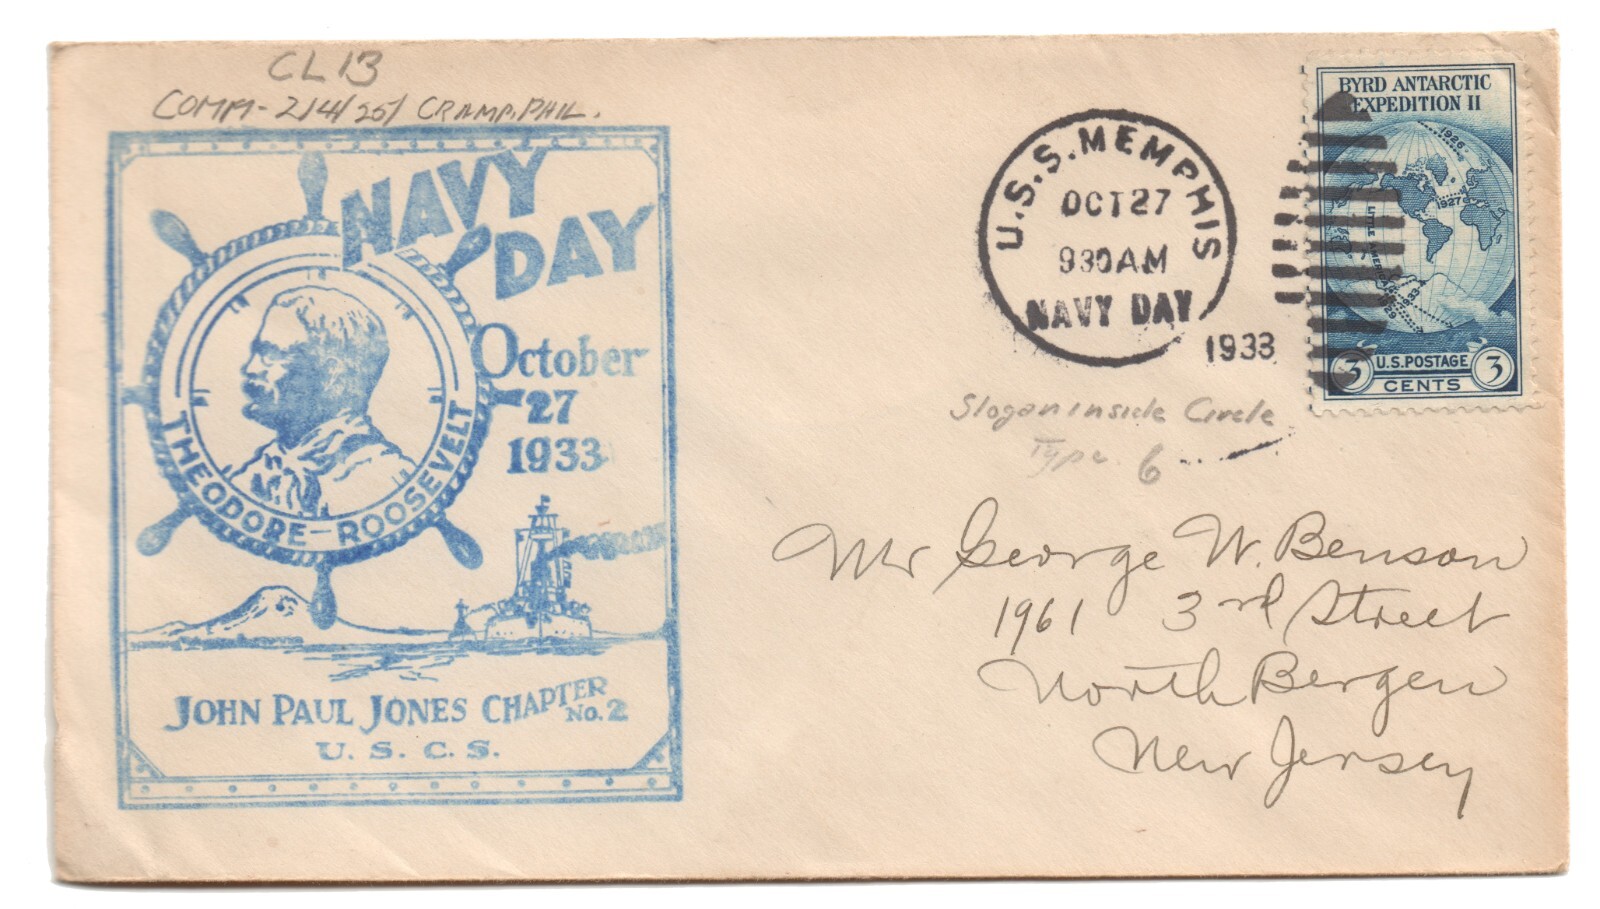 CL 13
COMM - 2/4/25/ CRAMP, PHIL.
NAVY
DAY
October
27
1933
THEODORE-ROOSEVELT
JOHN PAUL JONES CHAPTER
No. 2
U. S. C. S.
U.S.S. MEMPHIS
OCT 27
930 AM
NAVY DAY
1933
BYRD ANTARCTIC
EXPEDITION II
1926
1927
LITTLE AMERICA
1933
29
3 U.S. POSTAGE 3
CENTS
Slogan inside Circle
Type 6
Mr George W. Benson
1961 3rd Street
North Bergen
New Jersey